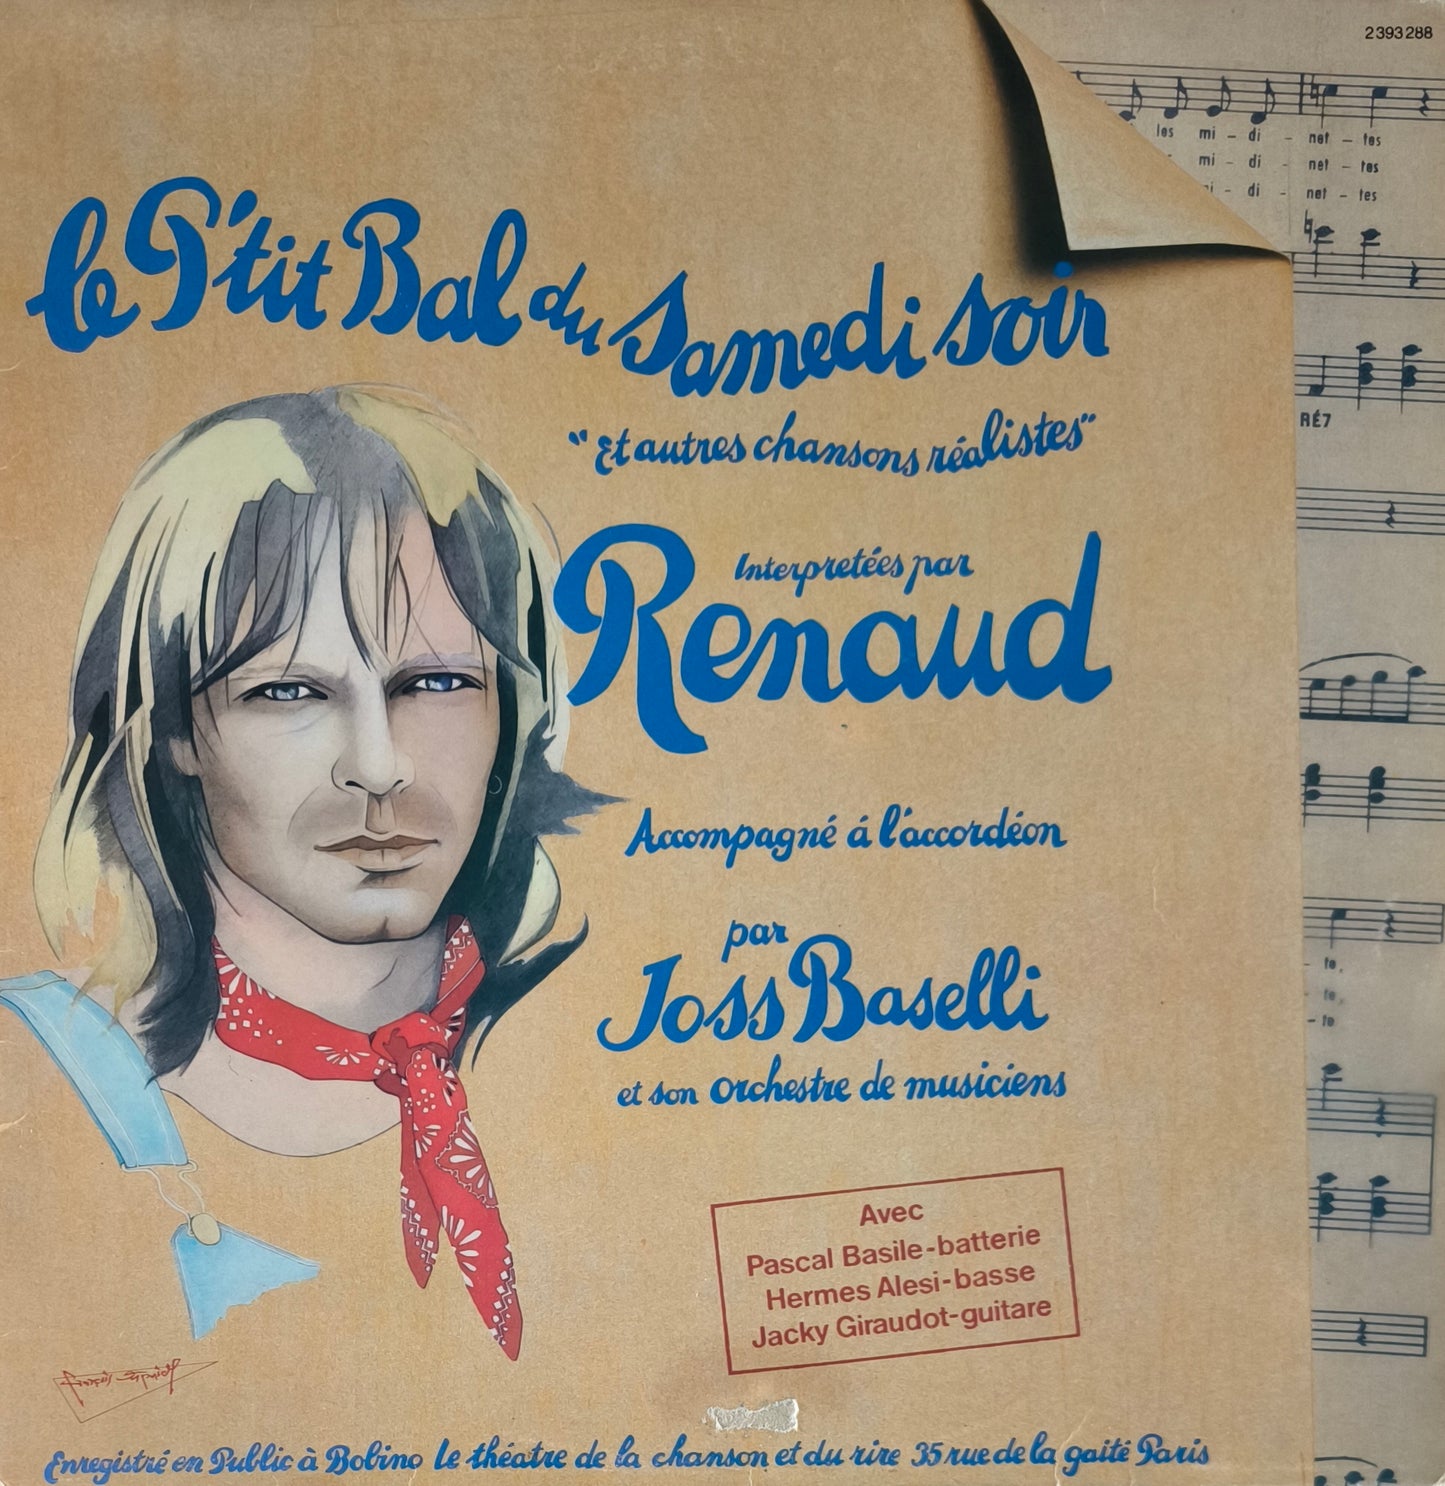 2393288
les mi - di - net - tes
- mi - di - net - tes
- di - net - tes
le P'tit Bal du Samedi soir
"Et autres chansons réalistes"
RÉ7
Interpretées par
Renaud
Accompagné á l'accordéon
par
Joss Baselli
- te,
- te,
- te
et son orchestre de musiciens
Avec
Pascal Basile-batterie
Hermes Alesi-basse
Jacky Giraudot-guitare
Enregistré en Public à Bobino Le théatre de la chanson et du rire 35 rue de la gaité Paris